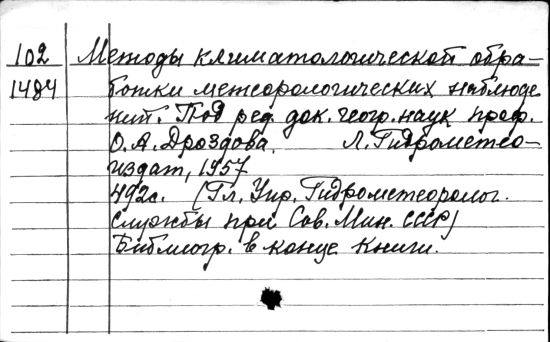 102 Методы климатологической обра-
1484 ботки метеорологических наблюде
ний. Под ред. док. геогр. наук проф.
О. А. Дроздова. Л. Гидрометео-
издат, 1957
492с. (Гл. Упр. Гидрометеоролог.
службы при Сов. Мин. СССР)
Библиогр. в конце книги.